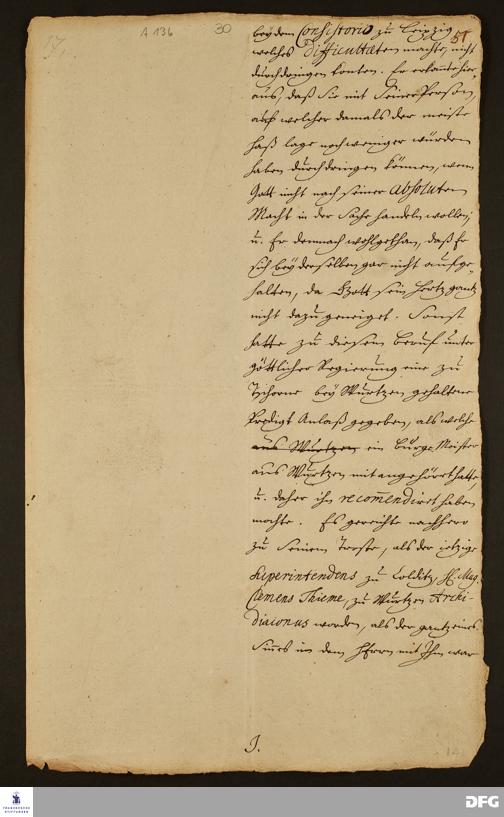 17.
A 136
30
51
bey dem Consistorio zu Leipzig
welches difficultæten machte, nicht
durchdringen konten. Er erkante hier-
aus, daß sie mit seiner Person,
auf welcher damals der meiste
Haß lage noch weniger würden
haben durchdringen können, wenn
Gott nicht nach seiner absoluten
Macht in der Sache handeln wollen;
u. Er demnach wohlgethan, daß Er
sich bey derselben gar nicht aufge-
halten, da Gott sein Hertz gantz
nicht dazu geneiget. Sonst
hatte zu diesem Beruf unter
göttlicher Regierung eine zu
Tschorne bey Wurtzen gehaltene
Predigt Anlaß gegeben, als welche
aus Wurtzen ein BurgeMeister
aus Wurtzen mit angehöret hatte,
u. daher ihn recommendiret haben
mochte. Es gereichte nachhero
zu seinem Troste, als der ietzige
Superintendens zu Colditz, H. Mag.
Clemens Thieme, zu Wurtzen Archi-
diaconus worden, als der gantz eines
Sinnes in dem Herrn mit Ihm war
J.
FRANCKESCHE
STIFTUNGEN
DFG